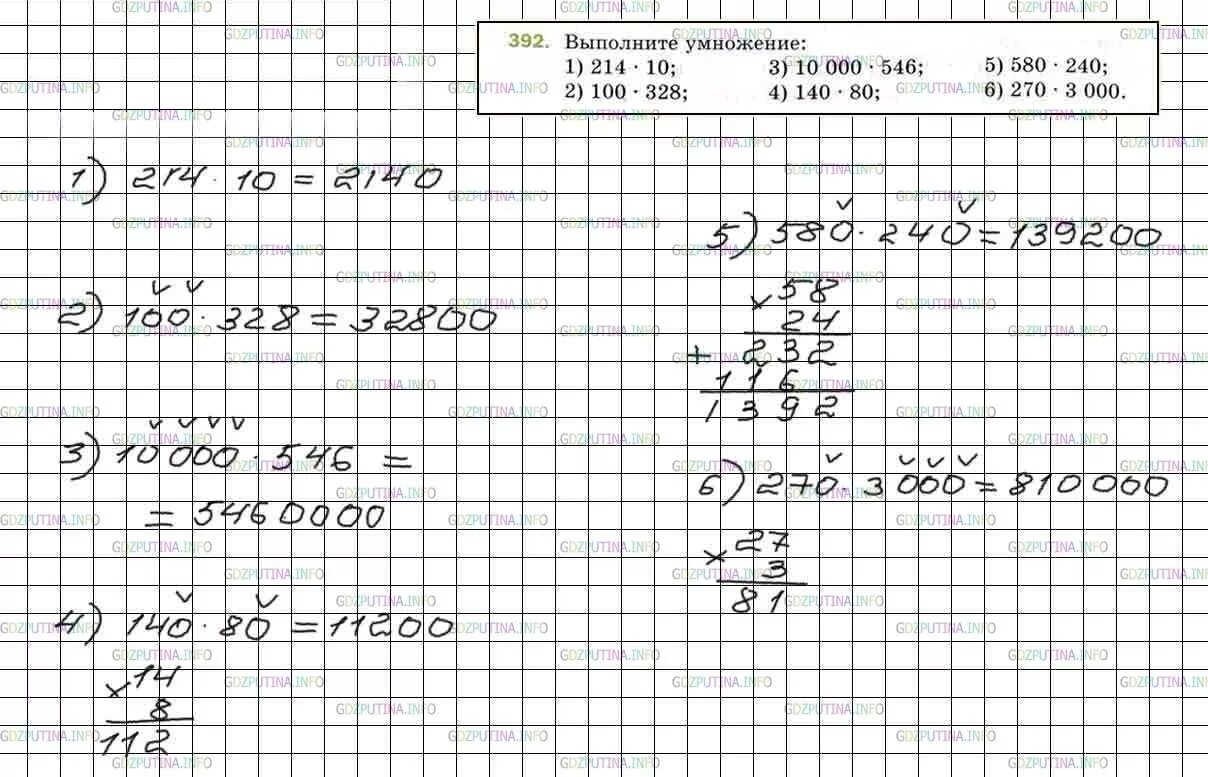 392. Выполните умножение:
1) 214 · 10; 3) 10 000 · 546; 5) 580 · 240;
2) 100 · 328; 4) 140 · 80; 6) 270 · 3 000.
1) 214 · 10 = 2140
2) 100 · 328 = 32800
3) 10 000 · 546 =
= 5460000
4) 140 · 80 = 11200
× 14
8
112
5) 580 · 240 = 139200
× 58
24
+ 232
116
1392
6) 270 · 3 000 = 810 000
× 27
3
81
GDZPUTINA.INFO